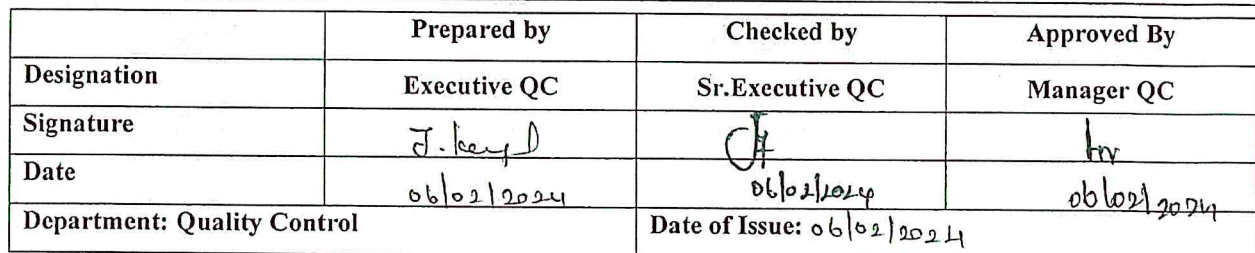 Prepared by Checked by Approved By
Designation Executive QC Sr.Executive QC Manager QC
Signature
Date 06/02/2024 06/02/2024 06/02/2024
Department: Quality Control Date of Issue: 06/02/2024